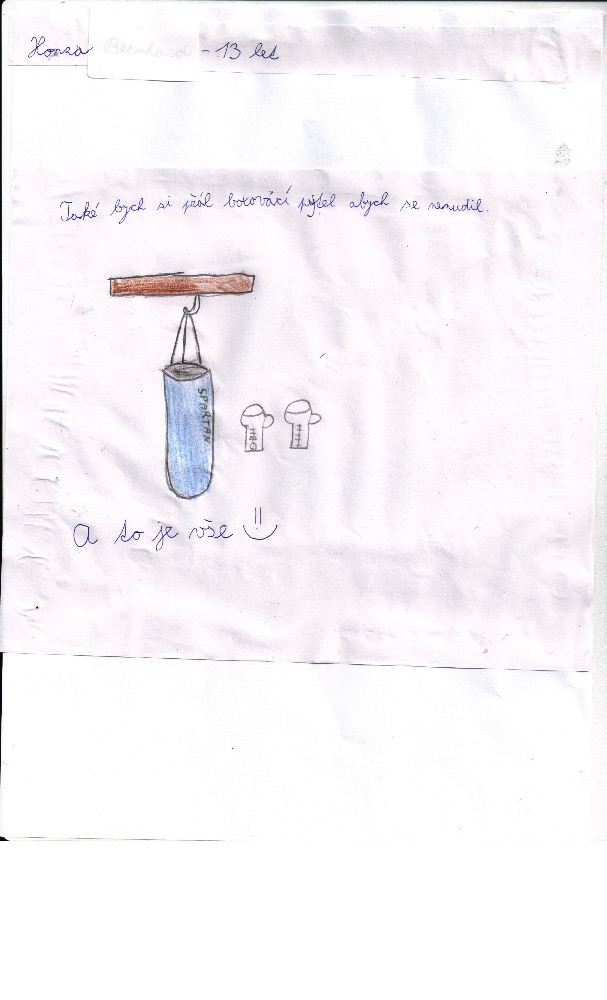 Honza - 13 let
Také bych si přál boxovácí pytel abych se nenudil.
SPARTAN
A to je vše